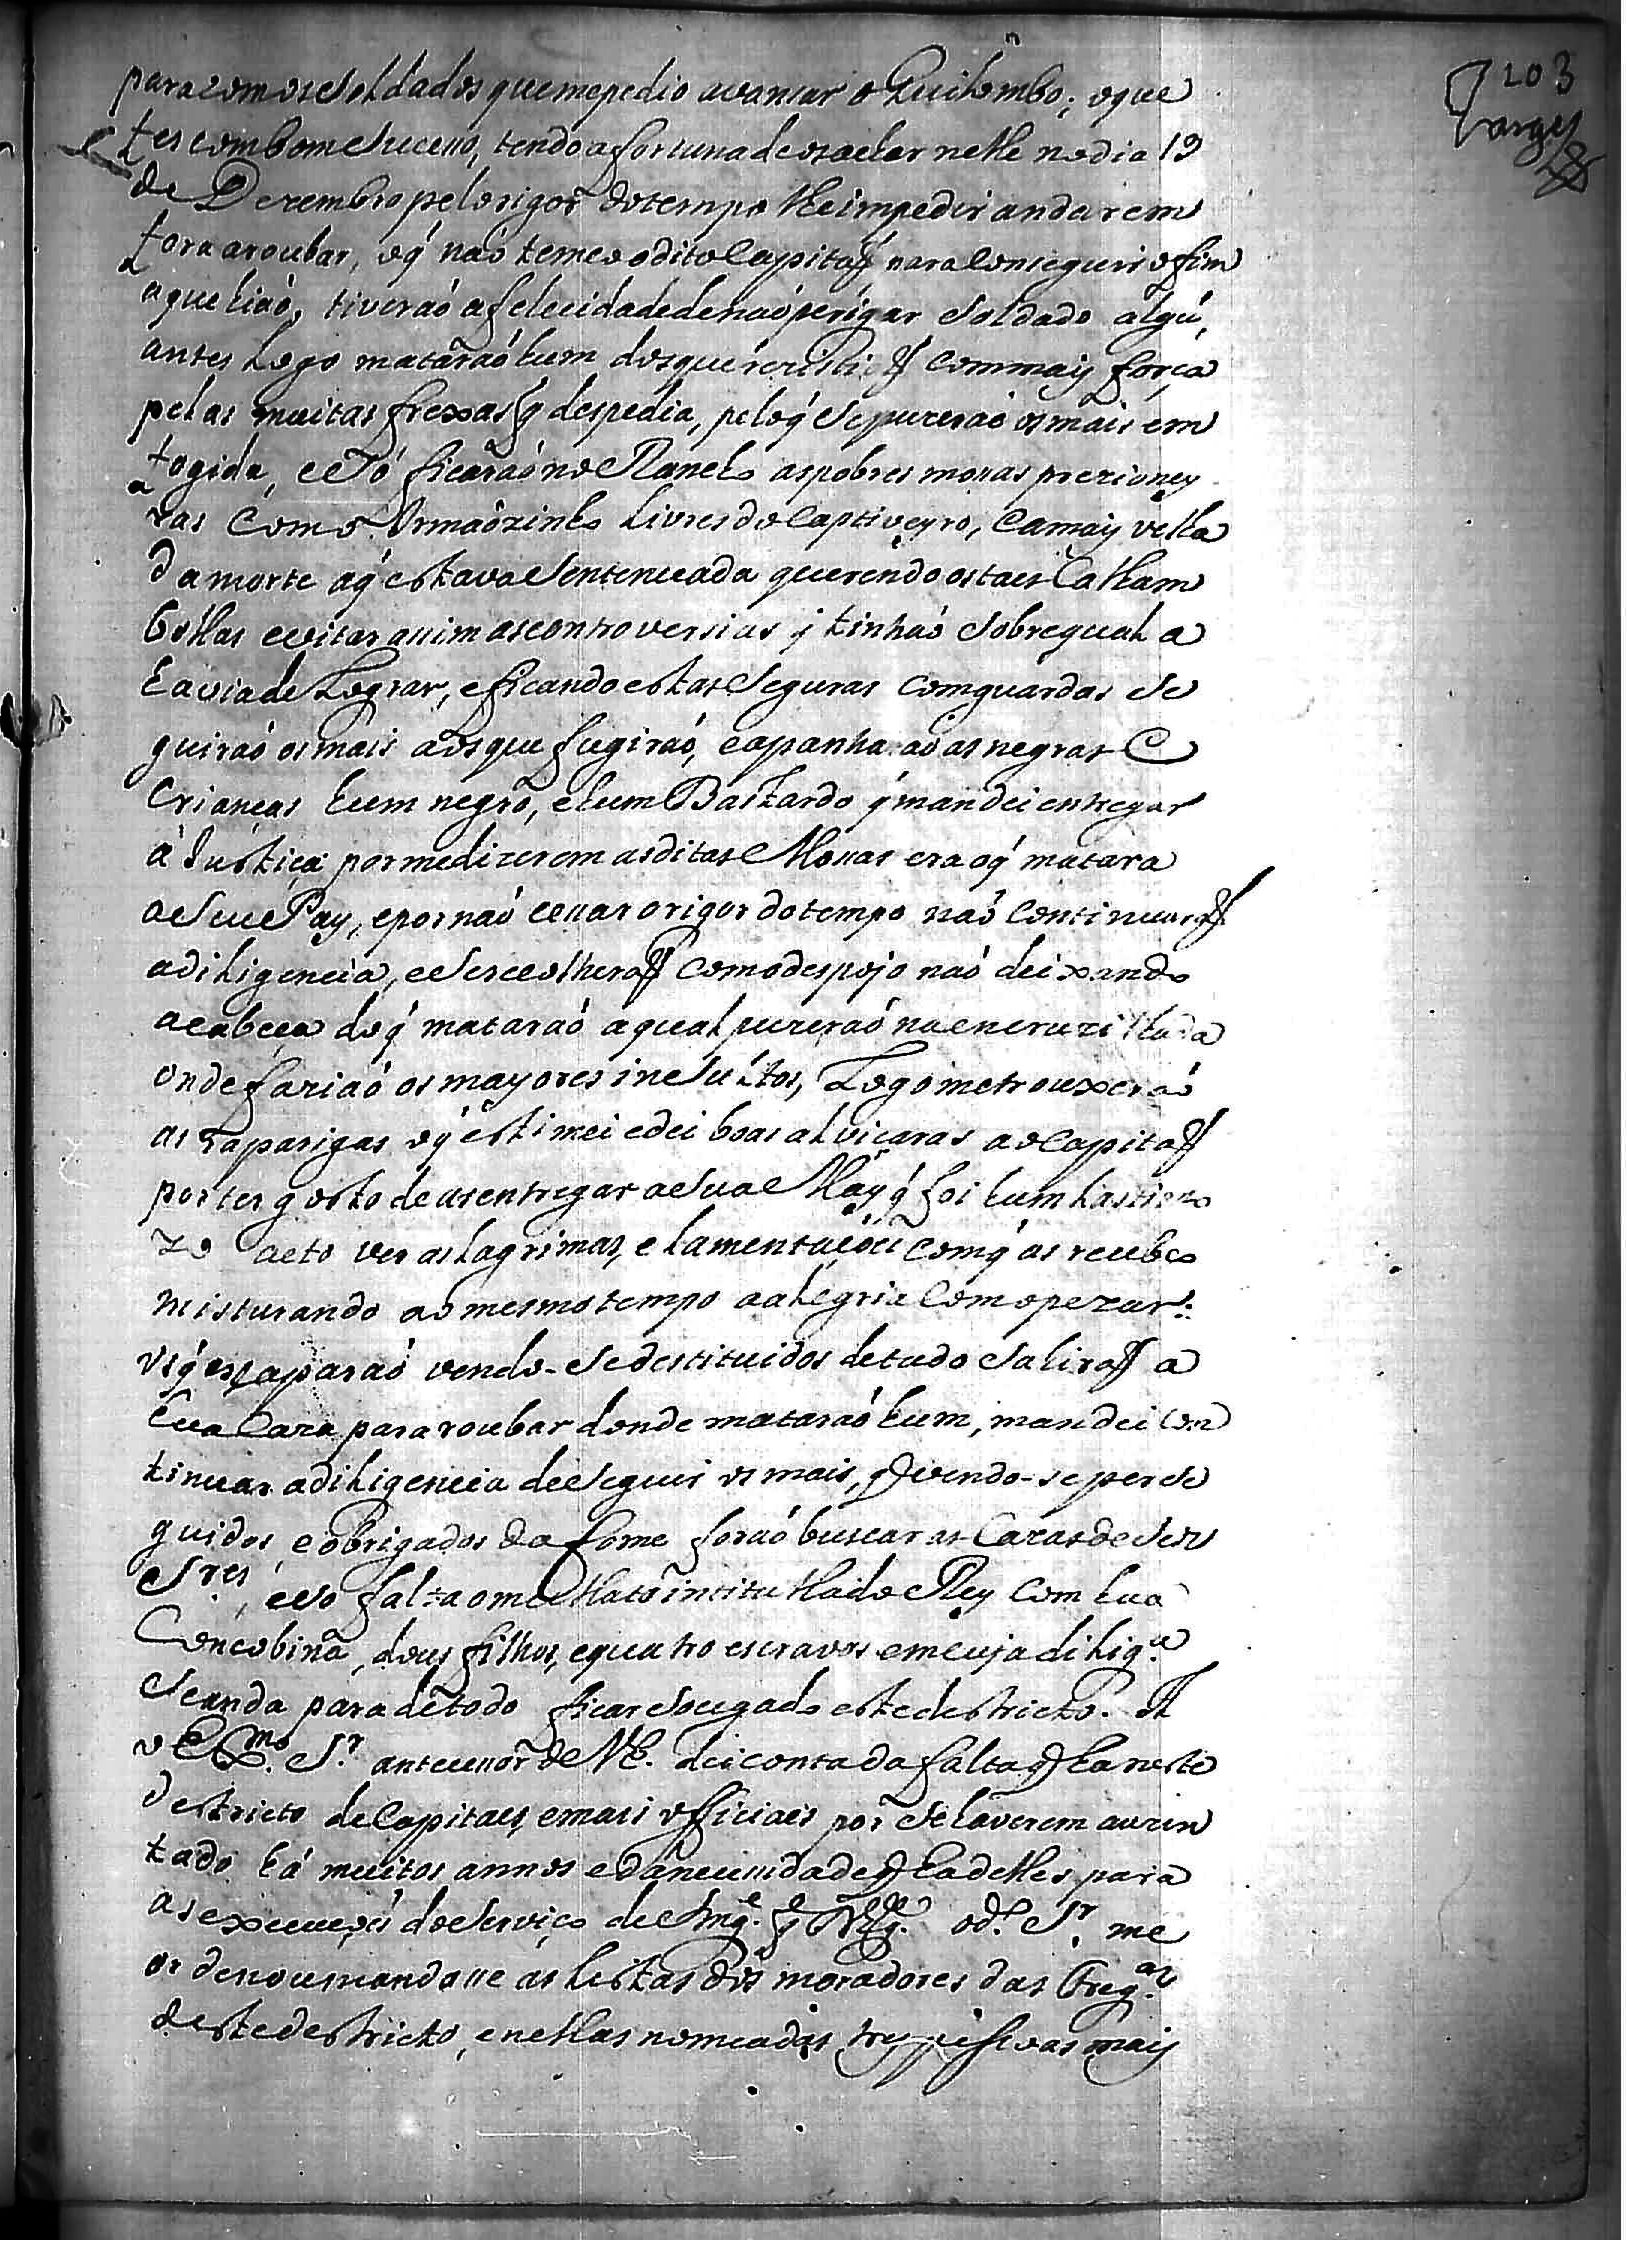 203
Vargas
para com os Soldados que me pedio avansar o Quilombo; o que
fes com bom Sucesso, tendo a fortuna de os achar nelle no dia 19
de Dezembro pelo rigor do tempo lhe impedir andarem
fora a roubar, o q́ naó temeo o dito Capitaõ para Conseguir o fim
a que hiaó, tiveraó a felecidade de naó perigar Soldado algú,
antes Logo mataraó hum dos que rezistiaõ Com mais força
pelas muitas frexas q́ despedia, pelo q́ Se puzeraó os mais em
fogida, e Só ficaraó no Rancho as pobres mossas prezioney
ras Com o Irmaózinho Livres do Captiveyro, e a may velha
da morte a q́ estava Sentenciada querendo os taes Calham
bólhas evitar assim as controversias q́ tinhaó Sobre qual a
havia de Lograr, e ficando estas Seguras Com guardas Se
guiraó os mais aos que fugiraó, e apanharaó as negras E
Crianças hum negro, e hum Bastardo q́ mandei entregar
á Justiça por me dizerem as ditas Mossas era o q́ matara
a Seu Pay, e por naó cessar o rigor do tempo naó Continuaraõ
a diligencia, e Se recolheraõ Com o despojo naó deixando
a cabeça do q́ mataraó a qual puzeraó na encruzilhada
onde faziaó os mayores insultos, Logo me trouxeraó
as raparigas o q́ estimei e dei boas alviçaras ao Capitaõ
por ter gosto de as entregar a Sua May q́ foi hum lastimo
zo acto ver as lagrimas, e lamentaçoés Com q́ as recebeo
misturando ao mesmo tempo a alegria Com o pezar:
os q́ escaparaó vendo-Se destituidos de tudo Sahiraõ a
hua Caza para roubar donde mataraó hum, mandei Con
tinuar a diligencia de Seguir os mais, q́ vendo-se perse
guidos, e obrigados da fome foraó buscar as Cazas de Seus
Sres, e so falta o mulato intitulhado Rey Com hua
Concobina, dous filhos, e quatro escravos em cuja dilig.ca
Se anda para de todo ficar Socegado este destricto. Ao
o Ex.mo S.r antecessor de VE. dei conta da falta q́ ha neste
destricto de Capitaes, e mais officiaes por Se haverem auzen
tado há muitos annos e da necessidade q́ ha delles para
as execuçoés do Serviço de S Mg.e q́ D.s g.de o d.o S.r me
ordenou mandasse as listas dos moradores das Freg.as
deste destricto, e nellas nomeadas tres pessoas mais